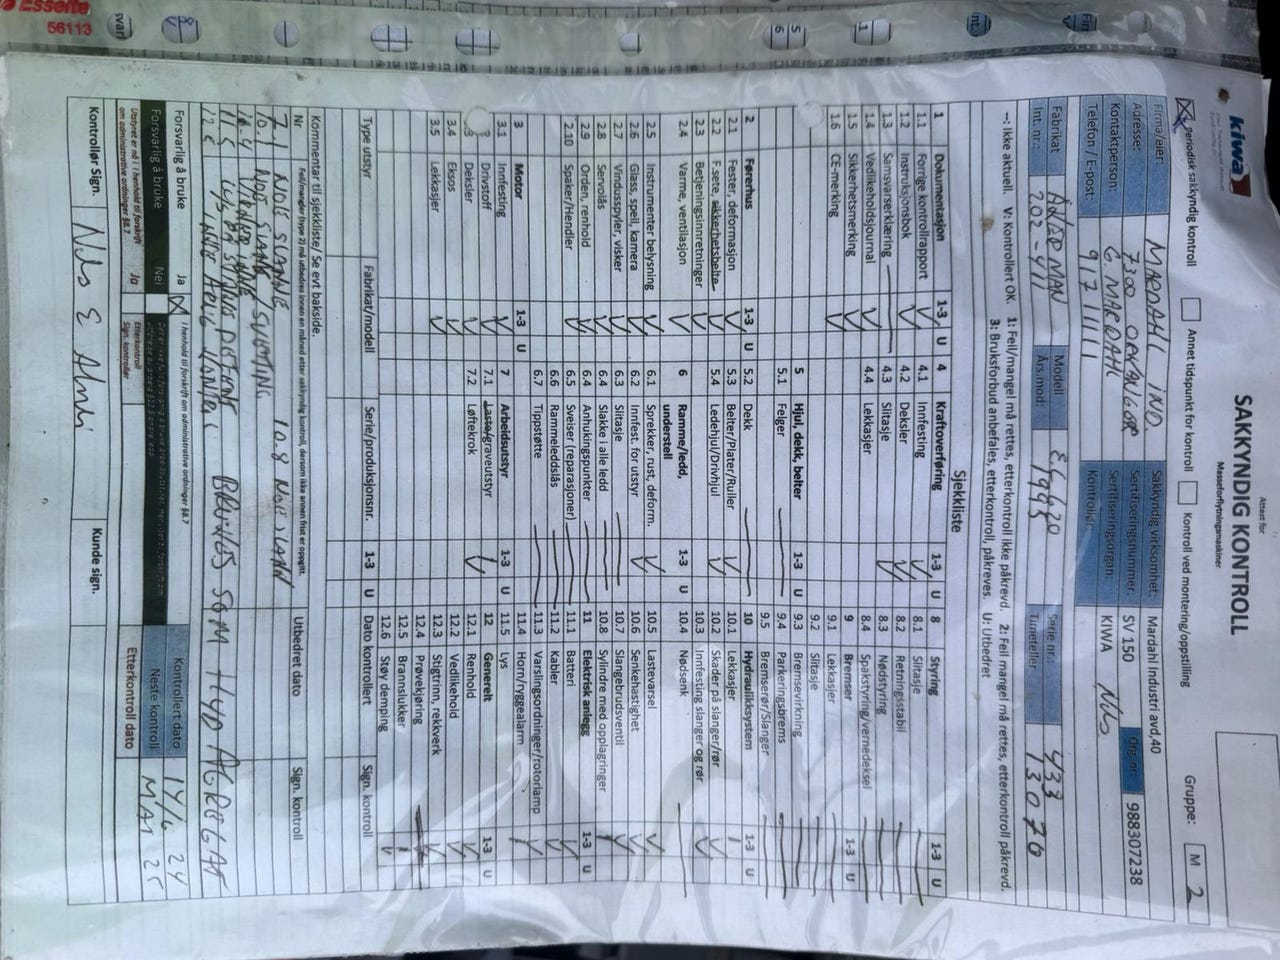 Esselte
56113
kiwa
Attest for
SAKKYNDIG KONTROLL
Masseforflytningsmaskiner
Gruppe: M 2
Periodisk sakkyndig kontroll
Annet tidspunkt for kontroll
Kontroll ved montering/oppstilling
Firma/eier: MARDAHL IND
Sakkyndig virksomhet: Mardahl Industri avd,40
Adresse: 7300 ORKANGER
Sertifiseringsnummer: SV 150
Org.-nr.: 988307238
Kontaktperson: G. MARDAHL
Sertifiseringsorgan: KIWA
Telefon / E-post: 917 11111
Kontrollør:
Fabrikat
Modell
Serie nr.: 433
Int. nr.: 202-411
Års.mod: 1995
Timeteller 13076
–: Ikke aktuell. V: Kontrollert OK. 1: Feil/mangel må rettes, etterkontroll ikke påkrevd. 2: Feil mangel må rettes, etterkontroll påkrevd.
3: Bruksforbud anbefales, etterkontroll, påkreves. U: Utbedret
Sjekkliste
1 Dokumentasjon 1-3 U
1.1 Forrige kontrollrapport
1.2 Instruksjonsbok
1.3 Samsvarserklæring
1.4 Vedlikeholdsjournal
1.5 Sikkerhetsmerking
1.6 CE-merking
2 Førerhus 1-3 U
2.1 Fester, deformasjon
2.2 F.sete, sikkerhetsbelte
2.3 Betjeningsinnretninger
2.4 Varme, ventilasjon
2.5 Instrumenter belysning
2.6 Glass, speil, kamera
2.7 Vindusspyler, visker
2.8 Servolås
2.9 Orden, renhold
2.10 Spaker/Hendler
3 Motor 1-3 U
3.1 Innfesting
Drivstoff
Deksler
3.4 Eksos
3.5 Lekkasjer
4 Kraftoverføring 1-3 U
4.1 Innfesting
4.2 Deksler
4.3 Slitasje
4.4 Lekkasjer
5 Hjul, dekk, belter 1-3 U
5.1 Felger
5.2 Dekk
5.3 Belter/Plater/Ruller
5.4 Ledehjul/Drivhjul
6 Ramme/ledd, understell 1-3 U
6.1 Sprekker, rust, deform.
6.2 Innfest. for utstyr
6.3 Slitasje
6.4 Slakke i alle ledd
6.4 Anhukingspunkter
6.5 Sveiser (reparasjoner)
6.6 Rammeleddslås
6.7 Tippstøtte
7 Arbeidsutstyr 1-3 U
7.1 Laste/graveutstyr
7.2 Løftekrok
8 Styring 1-3 U
8.1 Slitasje
8.2 Retningsstabil
8.3 Nødstyring
8.4 Spakstyring/vernedeksel
9 Bremser 1-3 U
9.1 Lekkasjer
9.2 Slitasje
9.3 Bremsevirkning
9.4 Parkeringsbrems
9.5 Bremserør/Slanger
10 Hydraulikksystem 1-3 U
10.1 Lekkasjer
10.2 Skader på slanger/rør
10.3 Innfesting slanger og rør
10.4 Nødsenk
10.5 Lastevarsel
10.6 Senkehastighet
10.7 Slangebruddsventil
10.8 Sylindre med opplagringer
11 Elektrisk anlegg 1-3 U
11.1 Batteri
11.2 Kabler
11.3 Varslingsordninger/rotorlamp
11.4 Horn/ryggealarm
11.5 Lys
12 Generelt 1-3 U
12.1 Renhold
12.2 Vedlikehold
12.3 Stigtrinn, rekkverk
12.4 Prøvekjøring
12.5 Brannslukker
12.6 Støy demping
Type utstyr
Fabrikat/modell
Serie/produksjonsnr.
Dato kontrollert
Sign. kontroll
Kommentar til sjekkliste/ Se evt bakside.
Nr
Feil/mangler (type 2) må utbedres innen en måned etter sakkyndig kontroll, dersom ikke annen frist er oppgitt.
Utbedret dato
Sign. kontroll
7-1 NOE SLANNE 10.8
10.1 NOE
11.5 LYS
BRUKES SOM HYD AGREGAT
Forsvarlig å bruke Ja
I henhold til forskrift om administrative ordninger §8.7
Kontrollert dato 14/6 24
Forsvarlig å bruke Nei
Neste kontroll MAI 25
Utstyret er nå i henhold til forskrift om administrative ordninger §8.7 Ja
Etterkontroll Sign. kontrollør
Etterkontroll dato
Kontrollør Sign.
Kunde sign.